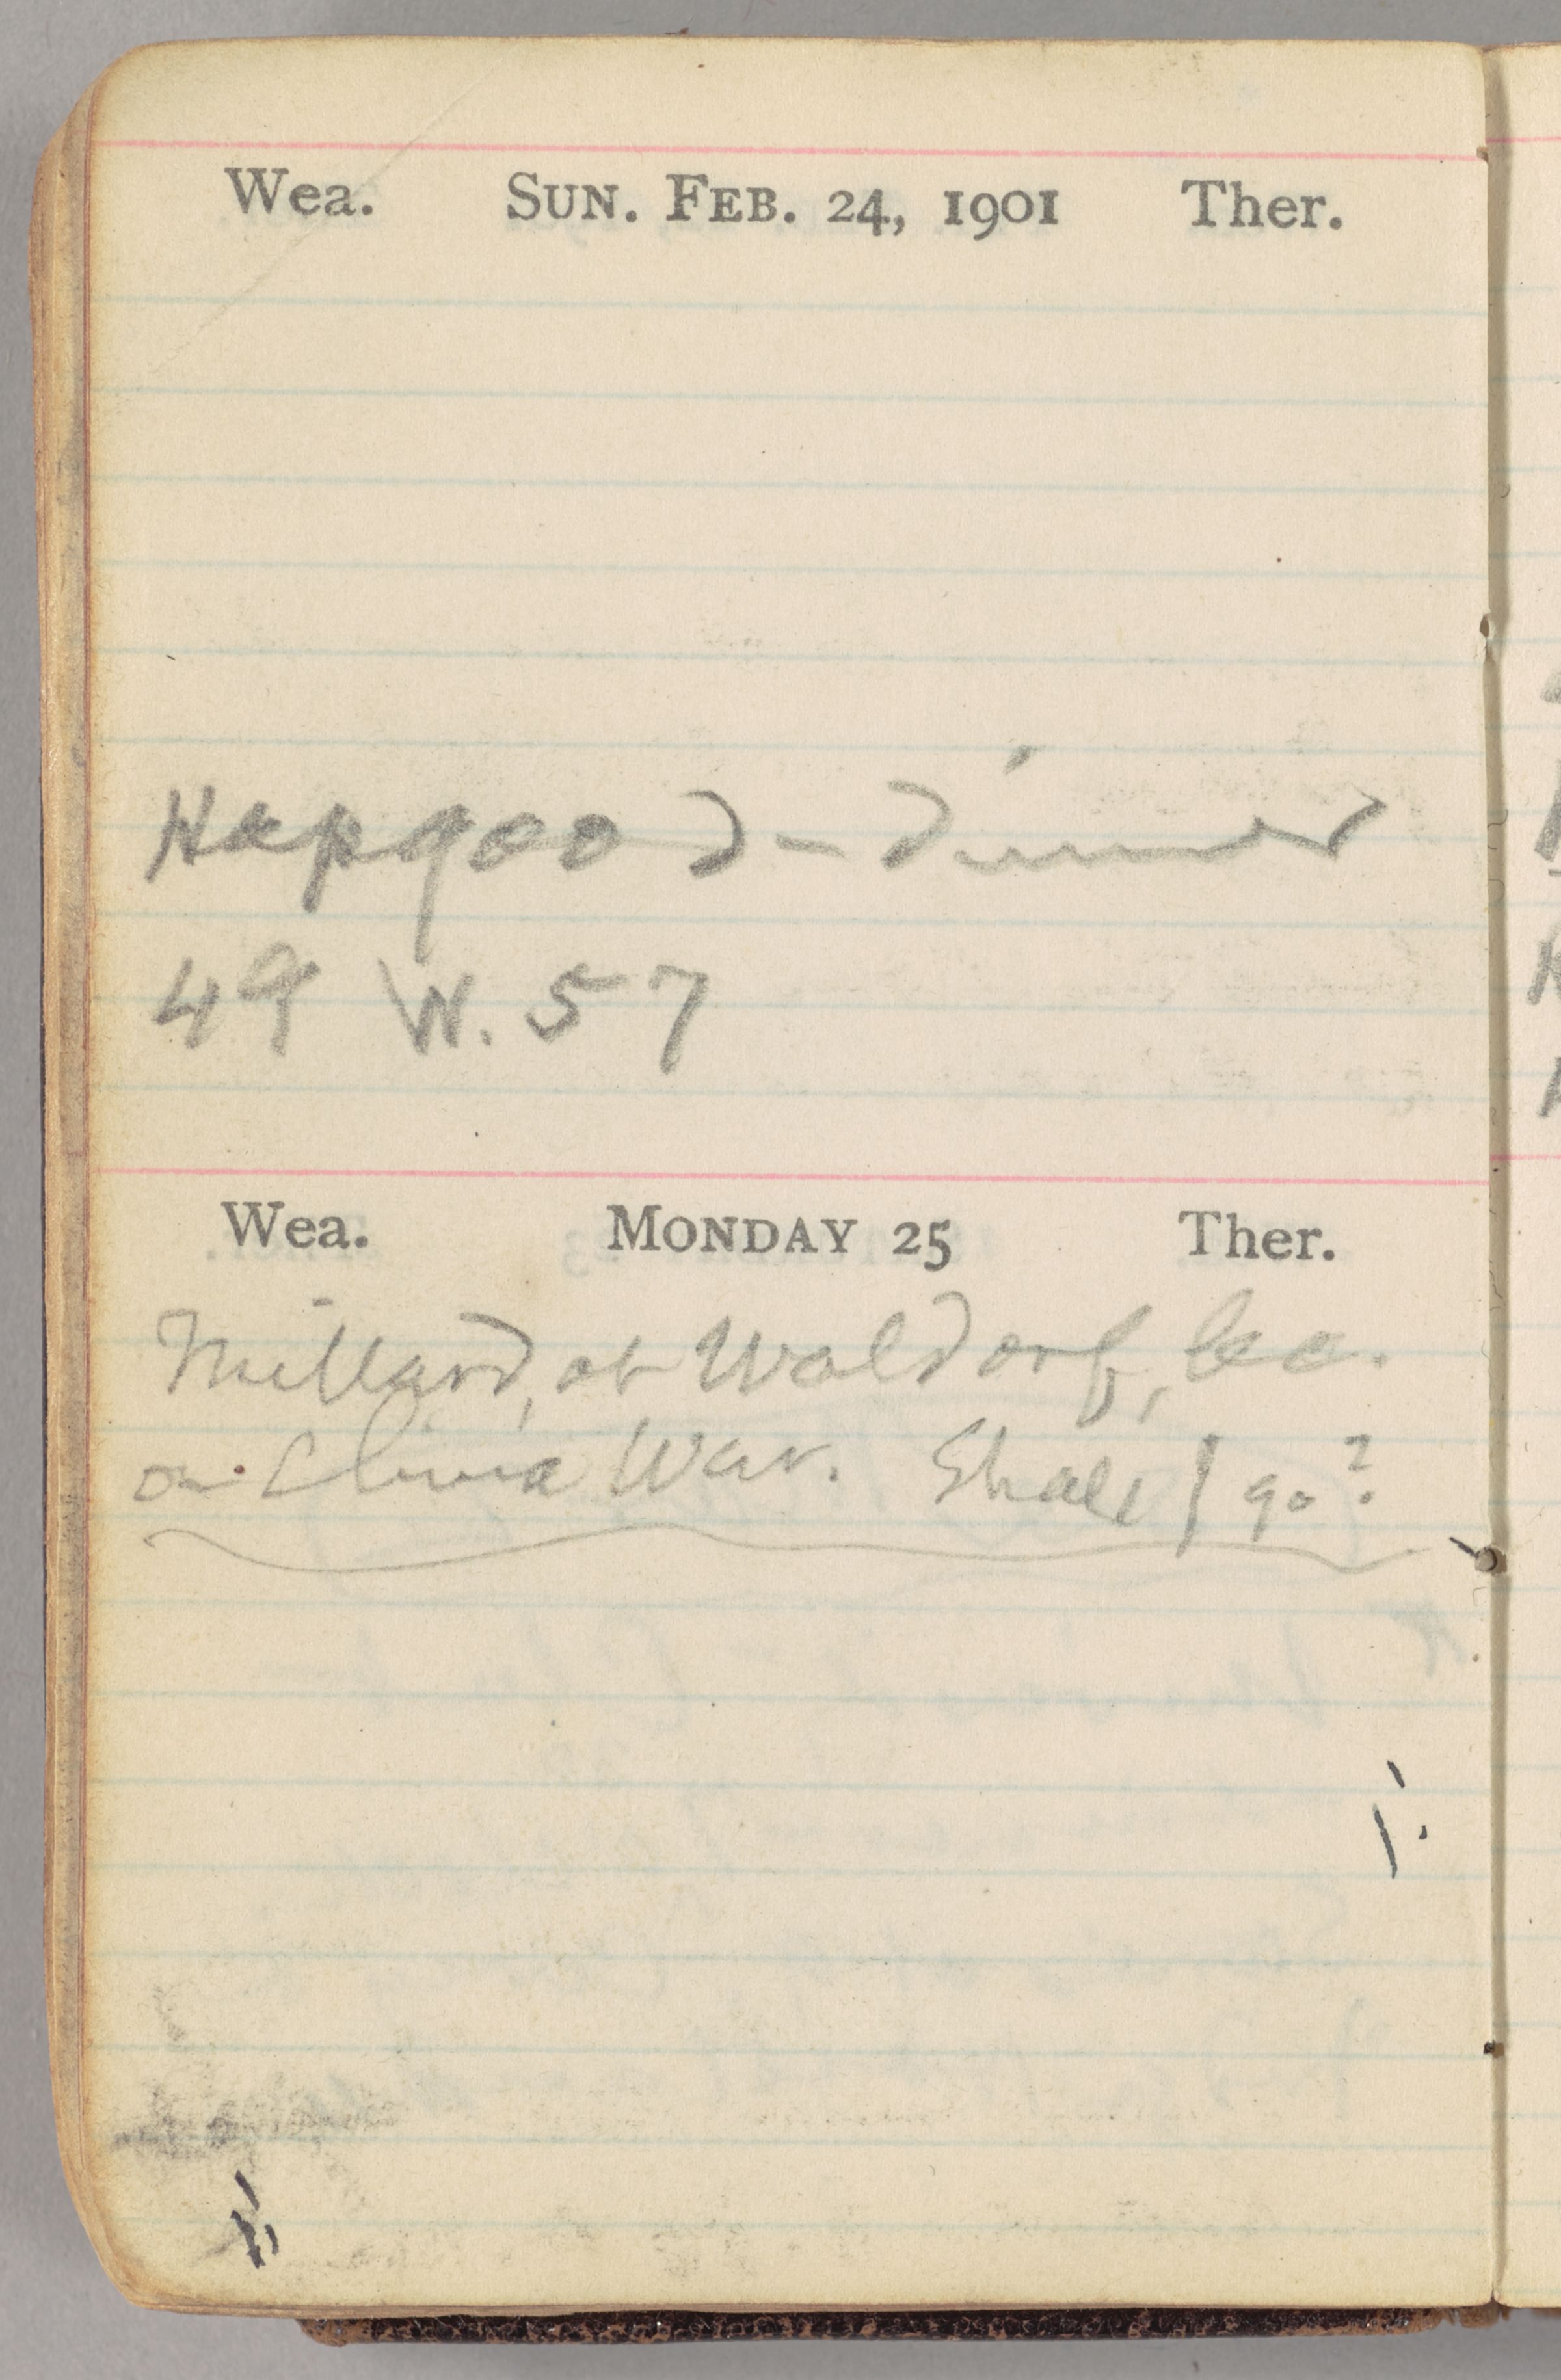 Wea. SUN. FEB. 24, 1901 Ther.
Hapgood - dinner
49 W. 57
Wea. MONDAY 25 Ther.
Millard, at Waldorf, lec.
on China War. Shall I go?